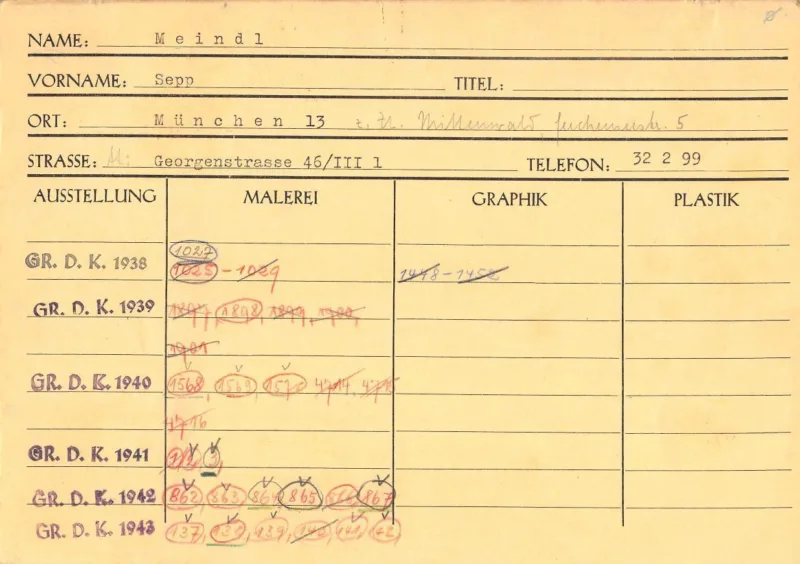 NAME: Meindl
VORNAME: Sepp TITEL:
ORT: München 13 z. Zt. Mittenwald, 5
STRASSE: Georgenstrasse 46/III l TELEFON: 32 2 99
AUSSTELLUNG MALEREI GRAPHIK PLASTIK
1027
GR. D. K. 1938 1025 - 1029 1448 - 1452
GR. D. K. 1939 1897, 1898, 1899, 1900,
1901
GR. D. K. 1940 1568, 1569, 1570 4714, 4715
4716
GR. D. K. 1941
GR. D. K. 1942 862, 863, 864, 865, 867
GR. D. K. 1943 137, 138, 139, 141, 142